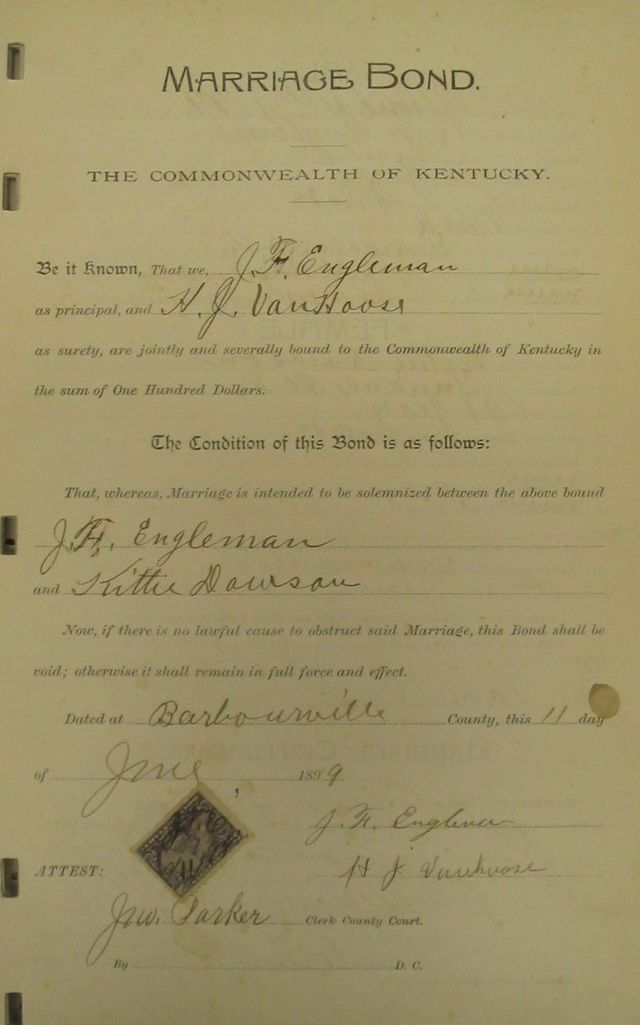 MARRIAGE BOND.
THE COMMONWEALTH OF KENTUCKY.
Be it Known, That we, J. F. Engleman
as principal, and H. J. VanHoose
as surety, are jointly and severally bound to the Commonwealth of Kentucky in
the sum of One Hundred Dollars.
The Condition of this Bond is as follows:
That, whereas, Marriage is intended to be solemnized between the above bound
J. F. Engleman
and Kittie Dowson
Now, if there is no lawful cause to obstruct said Marriage, this Bond shall be
void; otherwise it shall remain in full force and effect.
Dated at Barbourville County, this 11 day
of June 1899
J. F. Engleman
ATTEST: H J Vanhoose
Jno. Parker Clerk County Court.
By D. C.